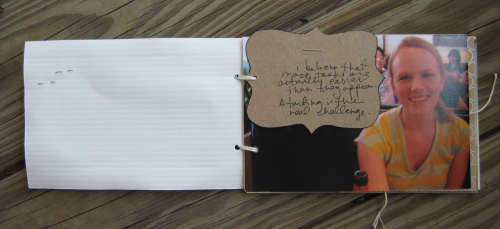 i believe that
many tasks are
actually easier
than they appear.
Starting is the
real challenge.